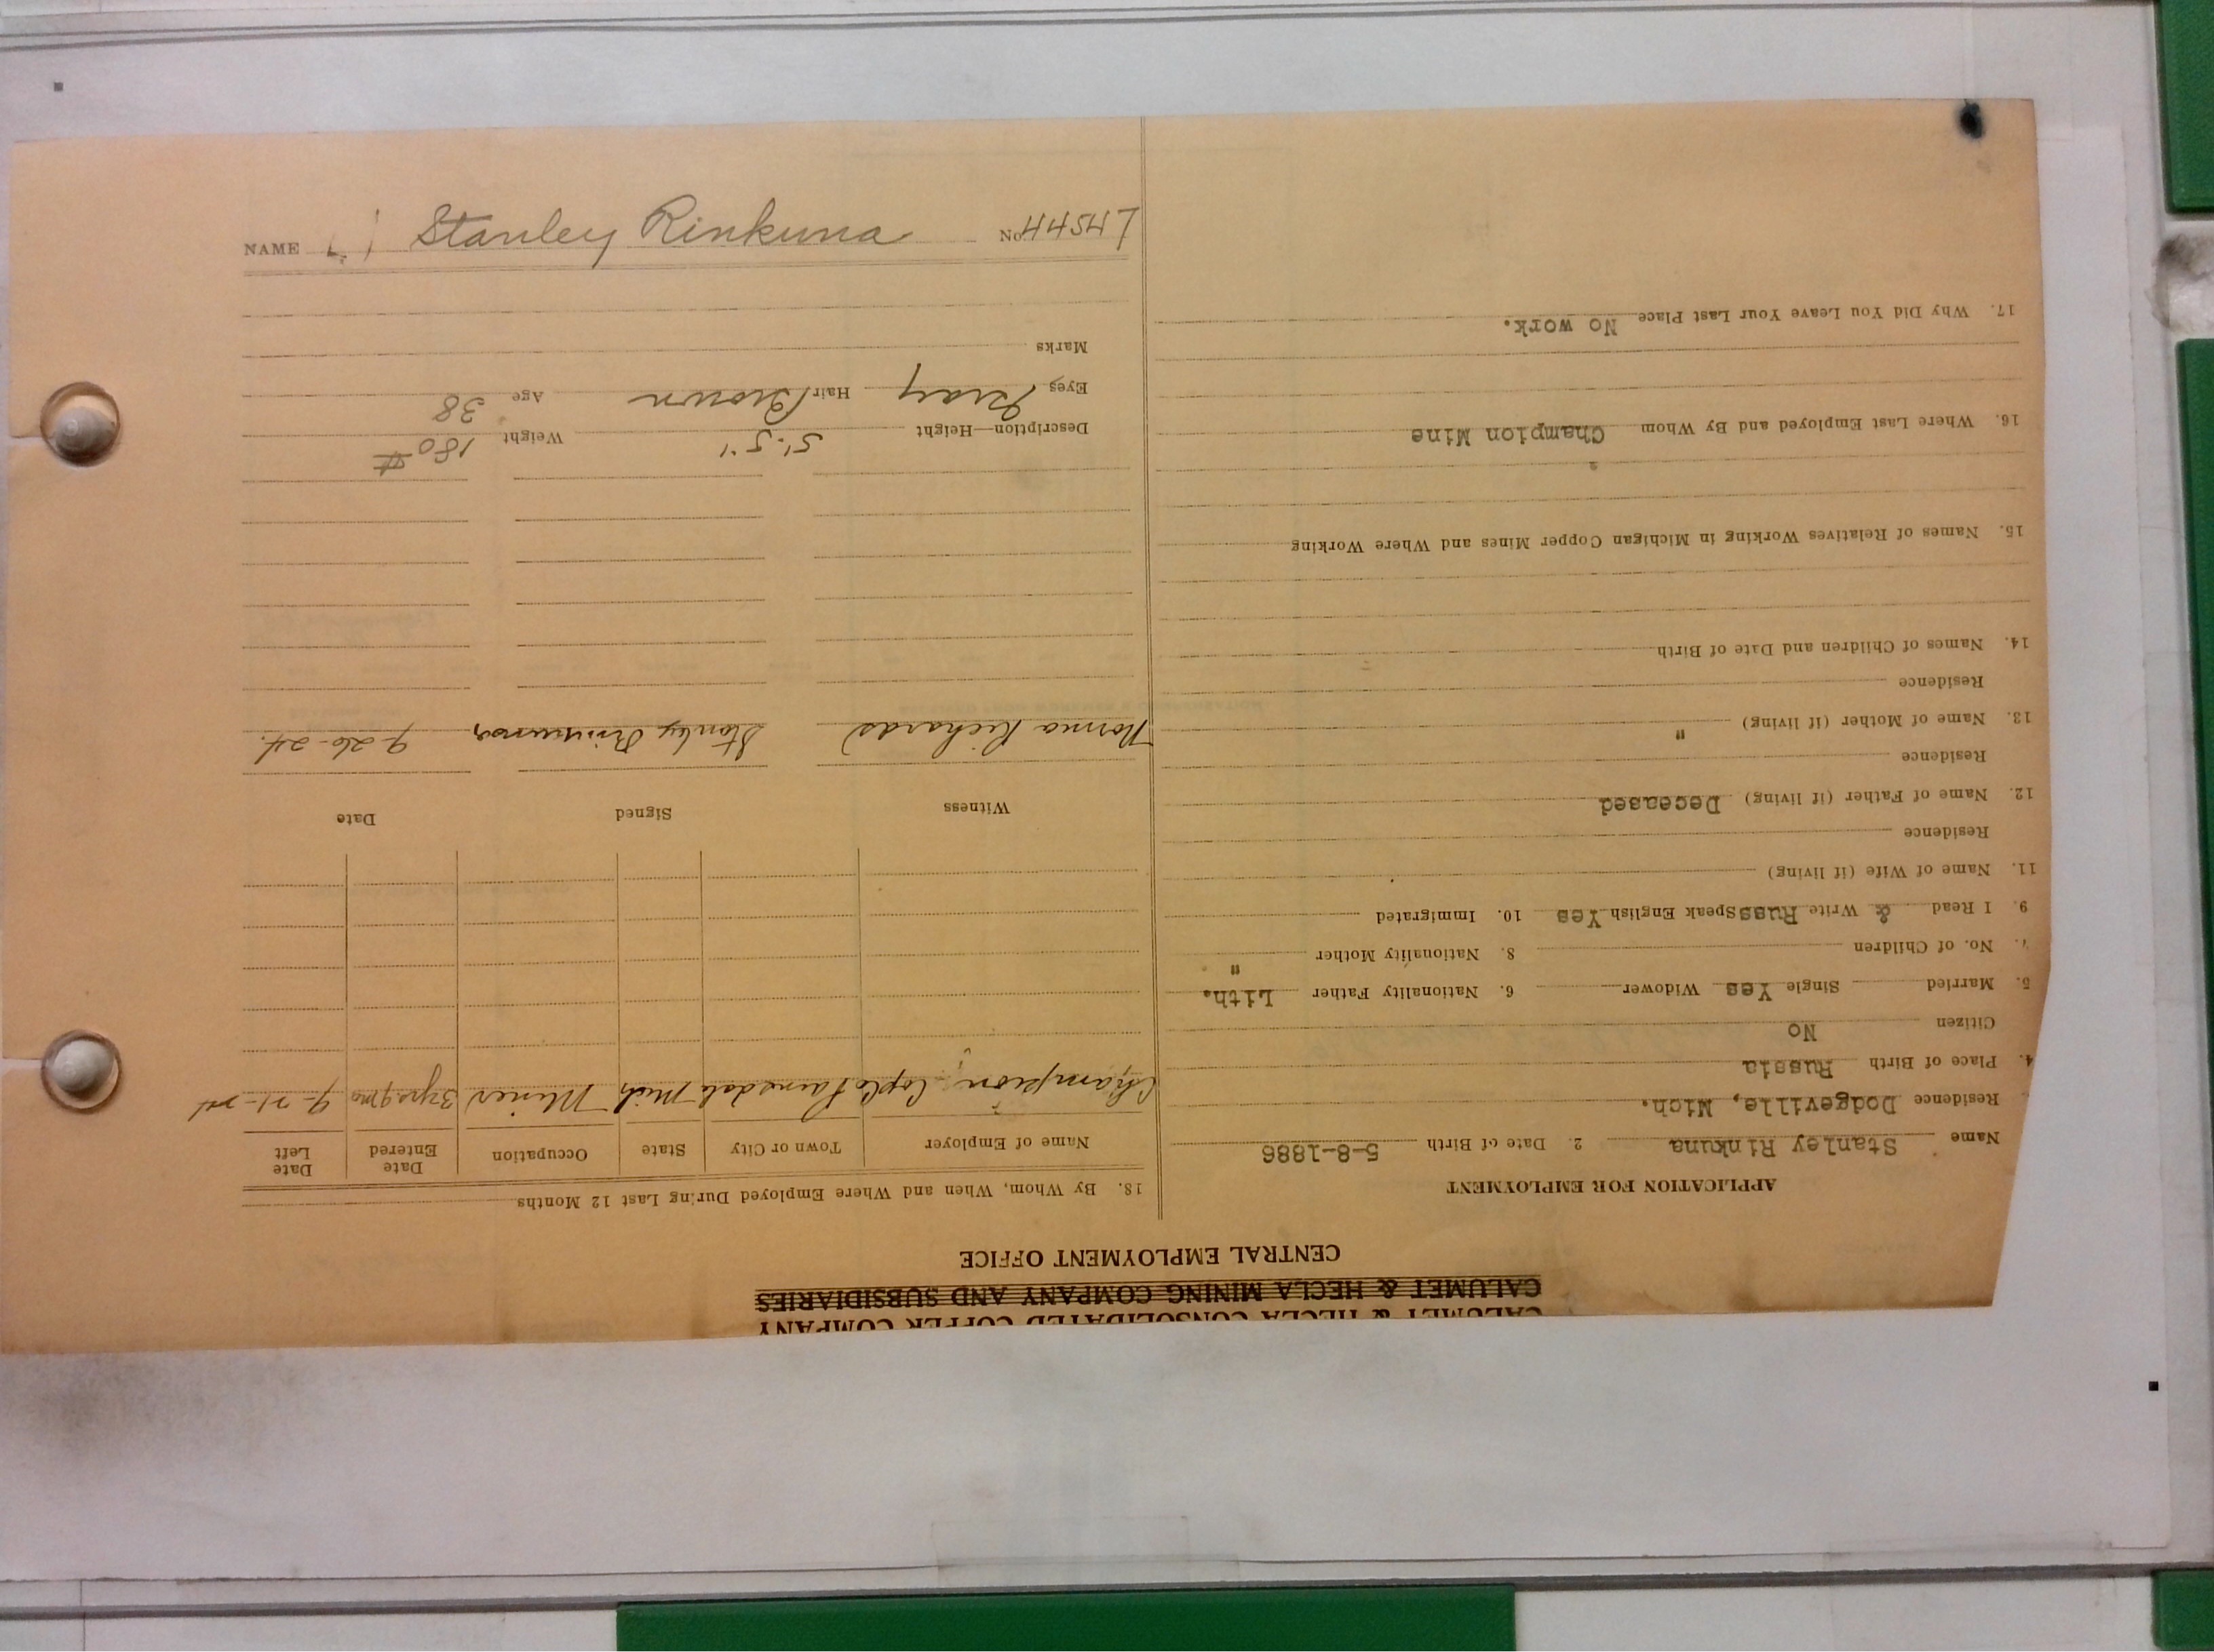 CALUMET & HECLA CONSOLIDATED COPPER COMPANY
CALUMET & HECLA MINING COMPANY AND SUBSIDIARIES
CENTRAL EMPLOYMENT OFFICE
APPLICATION FOR EMPLOYMENT
Name Stanley Rinkuna 2. Date of Birth 5-8-1886
Residence Dodgeville, Mich.
4. Place of Birth Russia
Citizen No
5. Married Single Yes Widower 6. Nationality Father Lith.
7. No. of Children 8. Nationality Mother "
9. I Read & Write Russ Speak English Yes 10. Immigrated
11. Name of Wife (if living)
Residence
12. Name of Father (if living) Deceased
Residence
13. Name of Mother (if living) "
Residence
14. Names of Children and Date of Birth
15. Names of Relatives Working in Michigan Copper Mines and Where Working
16. Where Last Employed and By Whom Champion Mine
17. Why Did You Leave Your Last Place No work.
18. By Whom, When and Where Employed During Last 12 Months
Name of Employer Town or City State Occupation Date Entered Date Left
Champion Painesdale Mich Miner 3 yrs 9 mo 9-21-24
Witness Signed Date
Norma Richards Stanley 9-26-24.
Description—Height 5'.5" Weight 180#
Eyes Gray Hair Brown Age 38
Marks
NAME Stanley Rinkuna No 44547